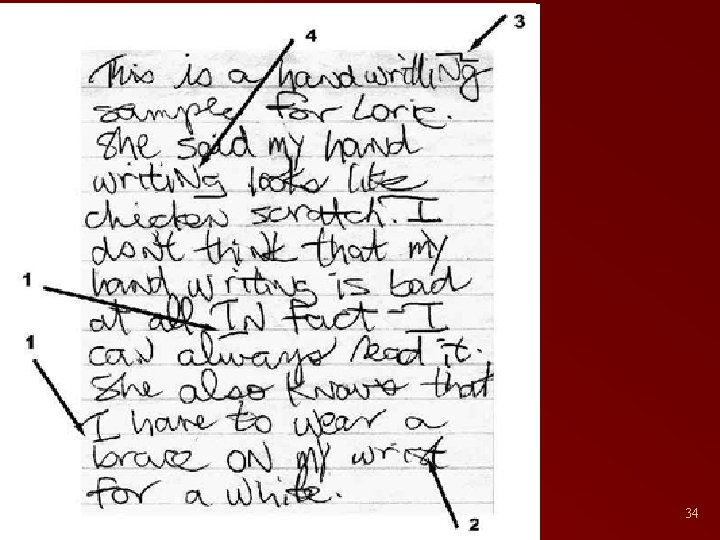 4
3
This is a handwritting
sample for Lorie.
She said my hand
writing looks like
chicken scratch. I
don't think that my
hand writing is bad
1
at all In fact I
1
can always read it.
She also knows that
I have to wear a
brace on my wrist
for a while.
2
34